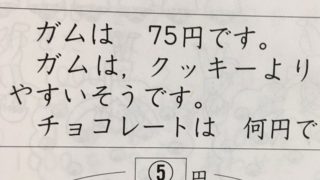 ガムは　75円です。
ガムは，クッキーより
やすいそうです。
チョコレートは　何円で
⑤ 円